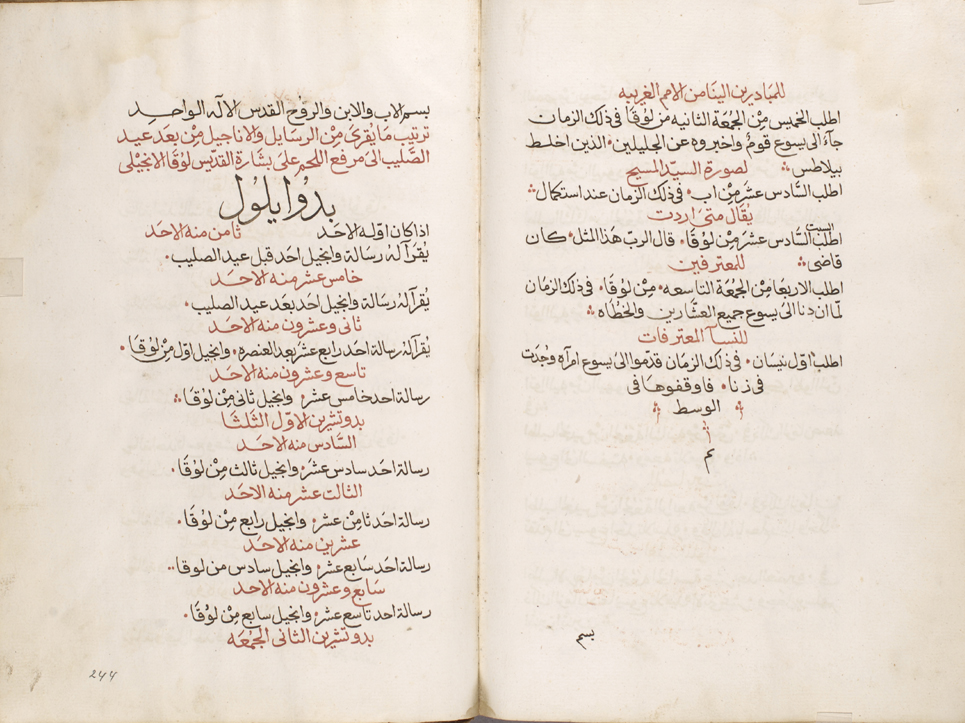 للمبادرين الينا من الامم الغريبه
اطلب الخميس مِنْ الجُمعَة الثانيه مِن لوُقاَ فى ذلك الزمان
جآءَ الى يسوع قومٌ واخبروه عن الجليليين الذين اخلط
بيلاطس لصورة السيّد المسيح
اطلب السَّادس عشر مِنْ اب فى ذلك الزمان عند استكمال
يُقَال متىَ اردت
السبت
اطلب السَّادس عشر مِنْ لوُقَا قال الربّ هَذا المثل كان
قاضى للمعترفين
اطلب الاربعَا مِنَ الجُمعَة التاسعه مِنْ لوُقَا فى ذلك الزمَان
لمّا ان دنا الىَ يسوع جميع العشّارين والخطُاَه
للنسآ المعترفات
اطلب اوّل نيسَان فى ذلك الزمَان قدّموا الىَ يسوع امرآه وُجدَت
فى زنا فاوقفوهَا فى
الوسط
تم
بسم
بسم الاب والابن والروُح القدس الالَه الواحد
ترتيب مَا يُقرَىَ مِنْ الرسَايل والاناجيل مِنْ بَعد عيد
الصَّليب الىَ مرفع اللحم علىَ بشَارة القدّيس لوُقَا الانجيْلى
بدوُ ايلوُل
اذا كان اوّله الاحَد ثامن منه الاحَد
يُقرَآ لهُ رسَالة وانجيل احَد قبل عيد الصَليب
خامس عشر منه الاحَد
يُقرَآ لهُ رسَالة وانجيل احَد بَعد عيد الصَليب
ثانى وعشرون منه الاحَد
يُقرَآ لهُ رسالة احَد رابع عشر بعد العنصره وانجيل اوّل مِنْ لوُقَا
تاسع وعشرون منه الاحَد
رسالة احَد خامس عشر وانجيل ثانى مِنْ لوُقَا
بدو تشرين الاوّل الثلثَا
السَّادس منه الاحَد
رسالة احَد سادس عشر وانجيل ثالث مِنْ لوُقَا
الثالث عشر منه الاحَد
رسالة احَد ثامِن عشر وانجيل رابع مِنْ لوُقَا
عشرين منه الاحَد
رسالة احَد سَابع عشر وانجيل سادس من لوقا
سَابع وعشرون منه الاحد
رسالة احد تاسع عشر وانجيل سابع مِنْ لوُقَا
بدو تشرين الثانى الجُمعَه
244